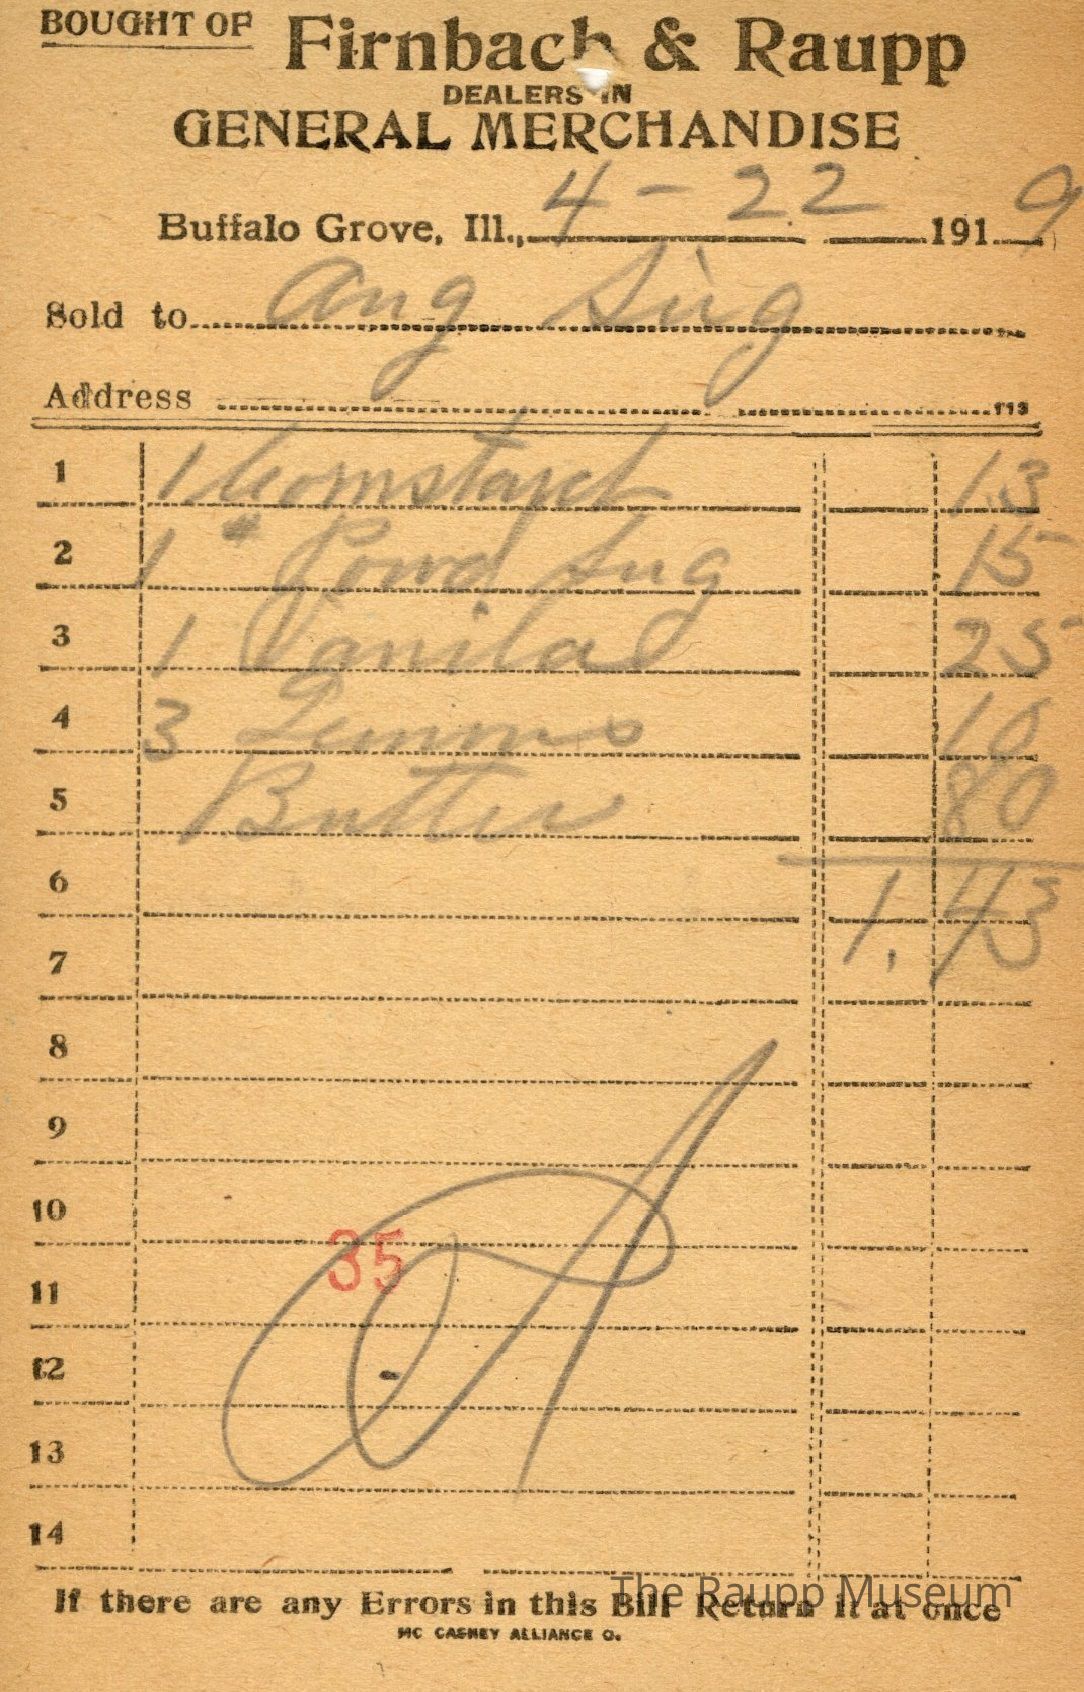 BOUGHT OF Firnbach & Raupp
DEALERS IN
GENERAL MERCHANDISE
Buffalo Grove, Ill., 4-22 1919
Sold to Aug Sirg
Address
1 1 Cornstarch 13
2 1 # Powd Sug 15
3 1 Vanila 25
4 3 Lemons 10
5 Butter 80
6
1.43
7
8
9
10
35
11
12
13
14
If there are any Errors in this Bill Return it at once
The Raupp Museum